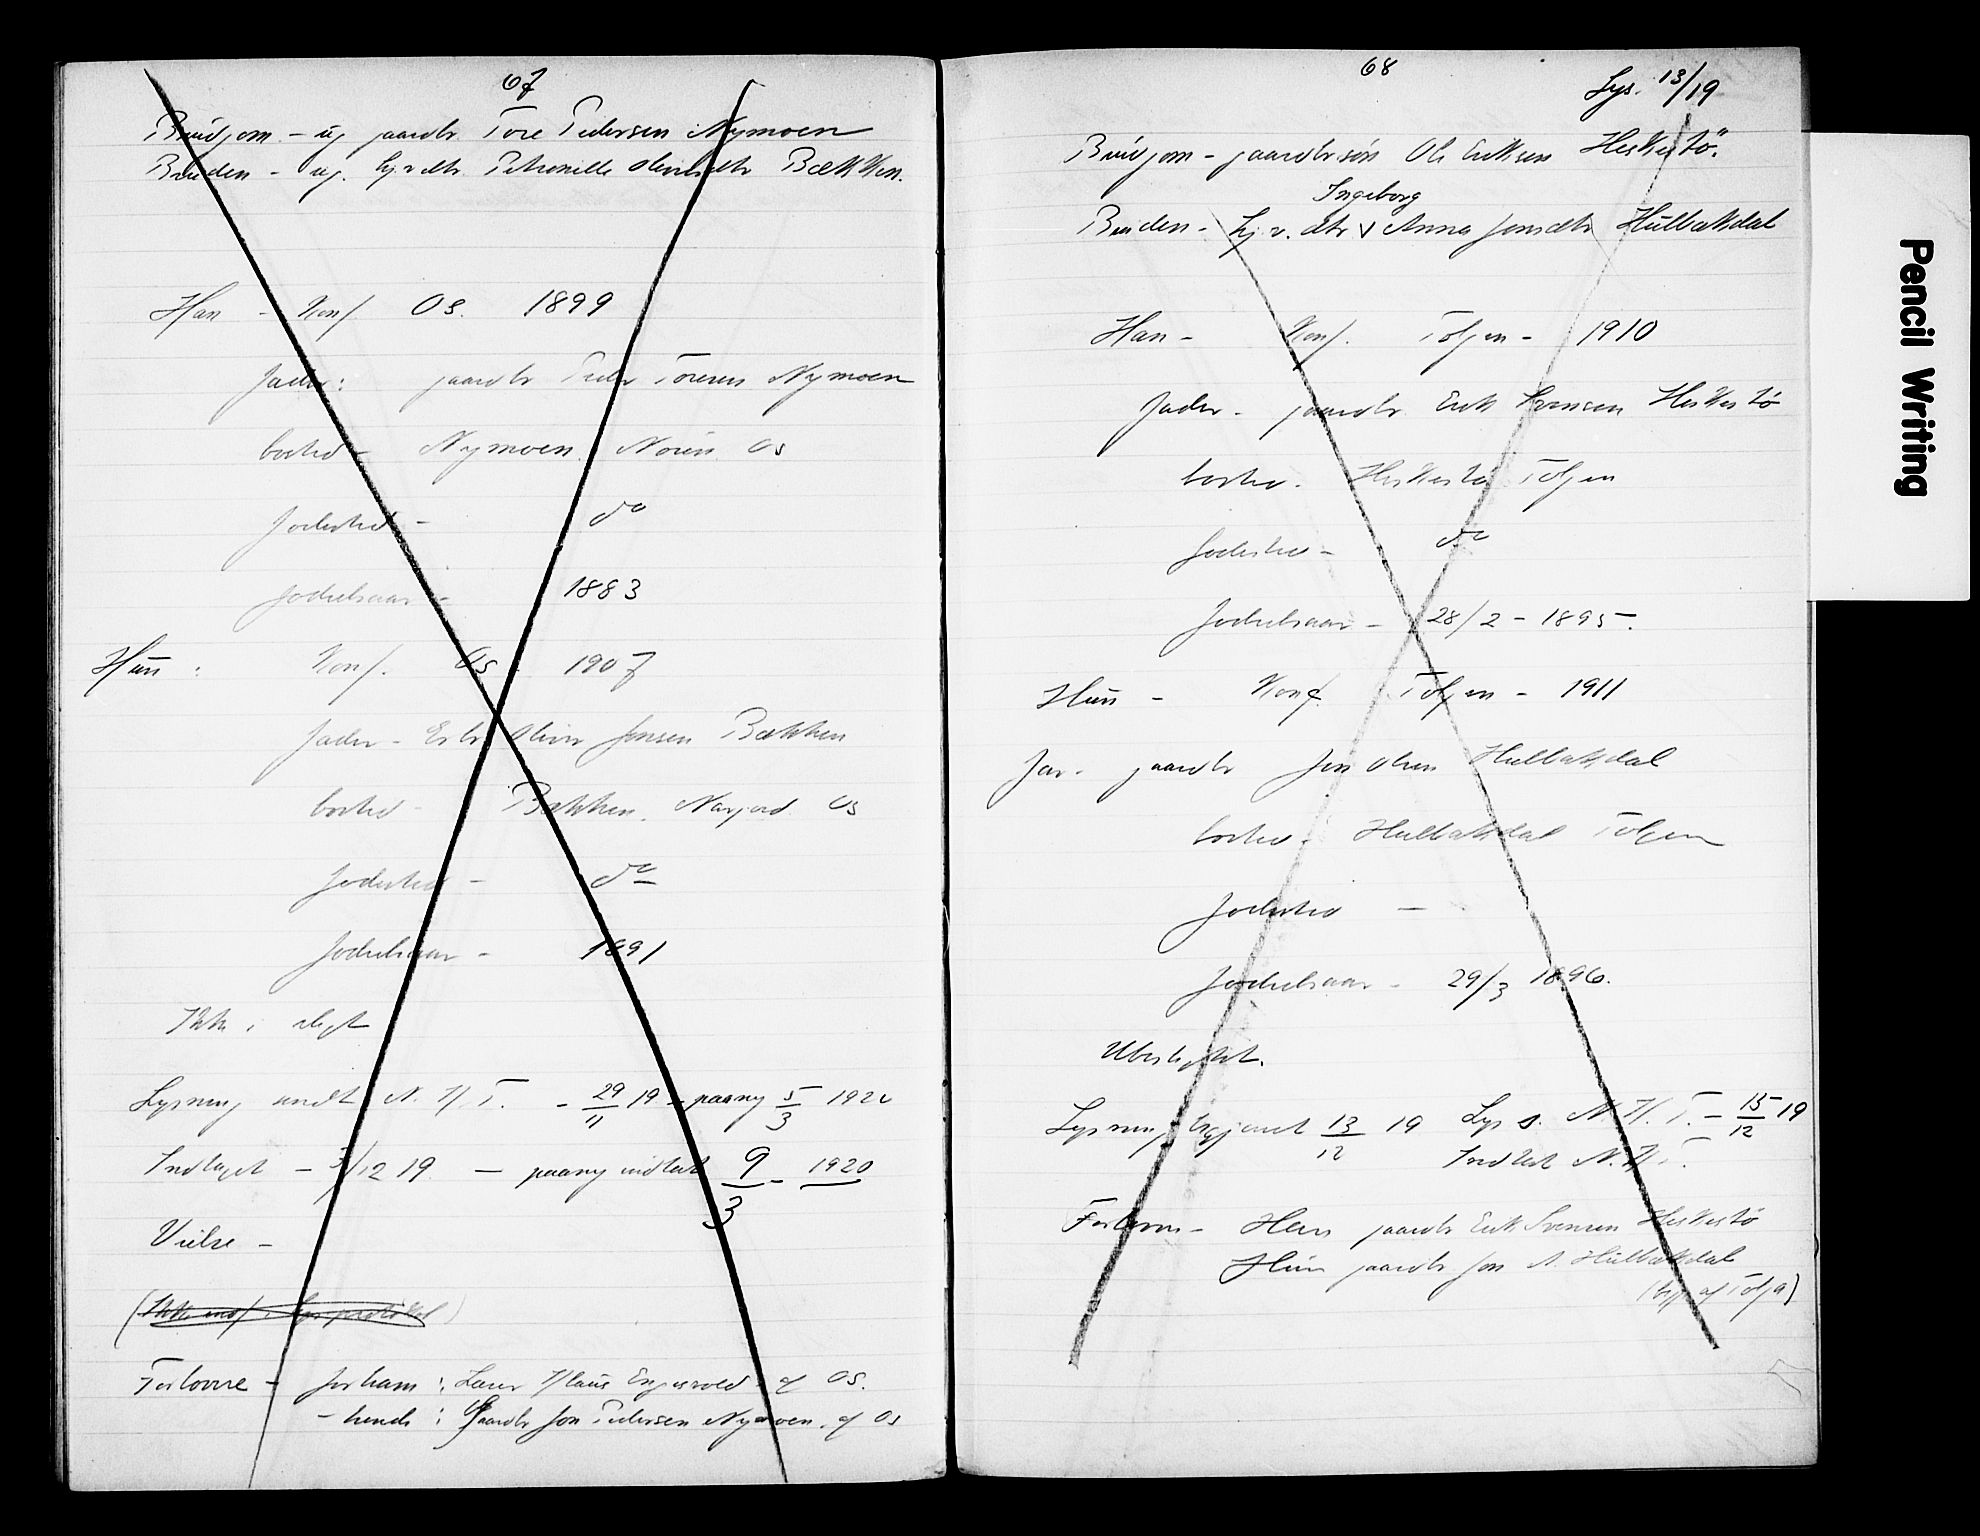 67
Brudgom - ug gaardbr. Tore Pedersen Nymoen
Bruden - ug. hjv. dtr. Petronille Oliversdtr Bækken.
Han - Konf. Os. 1899
Fader: gaardbr Peder Toresen Nymoen
bosted - Nymoen Nören Os
Fødested - do
Fødselsaar - 1883
Hun: Konf. Os - 1907
Fader - Oliver Jonsen Bækken
bosted - Bækken, Narjord Os
Fødested - do
Fødselsaar - 1891
Ikke i slegt
Lysning sendt N. K. T. - 29/11 19 - paany 5/3 1920
Indtaget - 3/12 19 - paany indtat 9/3 - 1920
Vielse -
(Ikke indf. i lys. protokol)
Forlovere - for ham: Lærer Klaus Engesvold af Os.
- hende: Gaardbr Jon Pedersen Nymoen af Os
68
Lys. 13/19
Brudgom - gaardbrsön Ole Eriksen Heskestö.
Ingeborg
Bruden - hj. v. dtr v Anna Jonsdtr Hulbaksdal
Han - Konf. Tolgen - 1910
Fader - gaardbr. Erik Svensen Heskestö
bosted. Heskestö Tolgen
Fødested - do
Fødselsaar - 28/2 - 1895.
Hun - Konf. Tolgen - 1911
Far. gaardbr Jon Olsen Hulbaksdal
bosted - Hulbaksdal Tolgen
Fødested -
Fødselsaar - 29/3 1896.
Ubeslegtet.
Lysning begjæret 13/12 19 Lys s. N. K. T. - 15/12 19
Indtat N. K. T.
Forlovere - Hans gaardbr Erik Svensen Heskestö
Hun gaardbr Jon O. Hulbaksdal
(begge af Tolga)
Pencil Writing